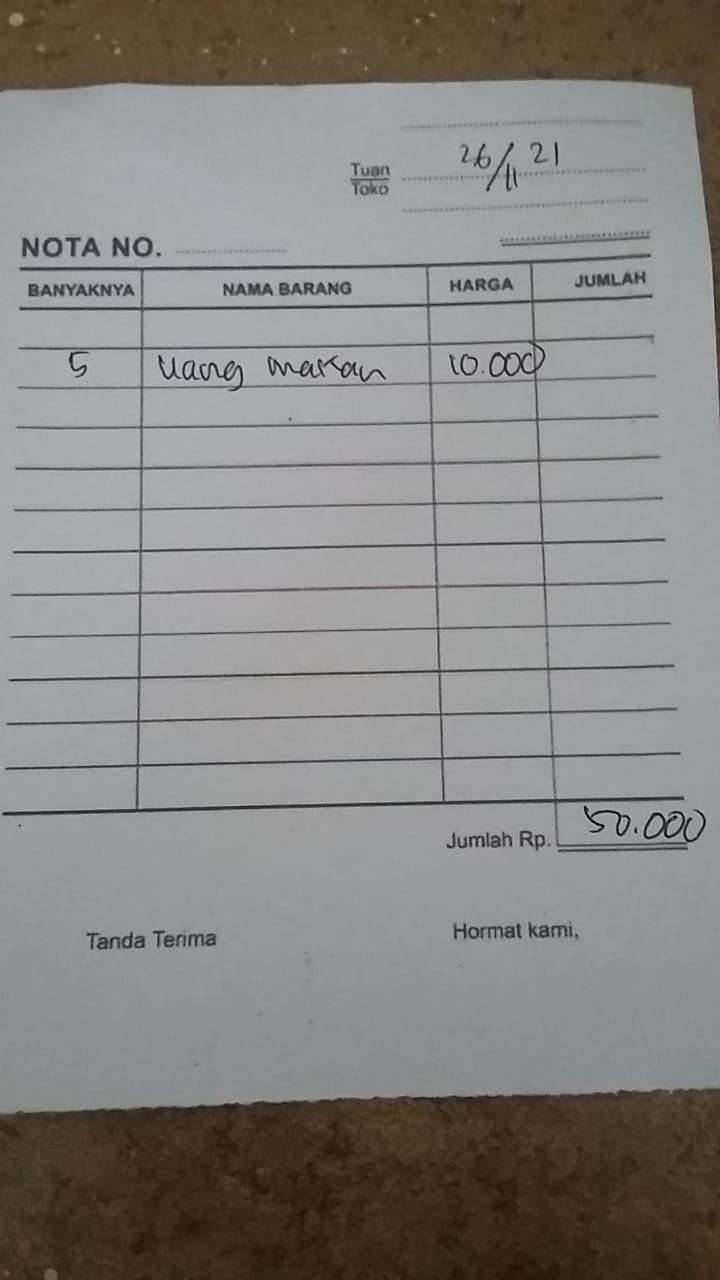 26/11 21
Tuan
Toko
NOTA NO.
BANYAKNYA NAMA BARANG HARGA JUMLAH
5 uang makan 10.000
Jumlah Rp. 50.000
Tanda Terima Hormat kami,